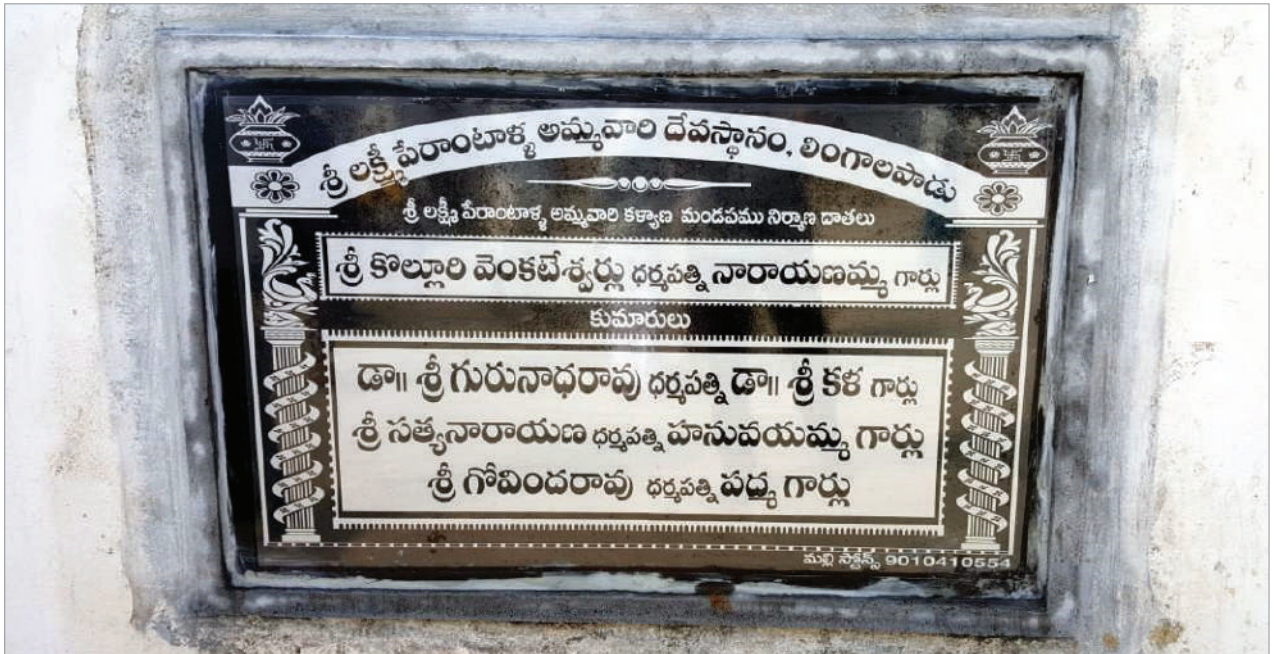 శ్రీ లక్ష్మీ పేరాంటాళ్ళ అమ్మవారి దేవస్థానం, లింగాలపాడు
శ్రీ లక్ష్మీ పేరాంటాళ్ళ అమ్మవారి కళ్యాణ మండపము నిర్మాణ దాతలు
శ్రీ కొల్లూరి వెంకటేశ్వర్లు ధర్మపత్ని నారాయణమ్మ గార్లు
కుమారులు
డా|| శ్రీ గురునాధరావు ధర్మపత్ని డా|| శ్రీ కళ గార్లు
శ్రీ సత్యనారాయణ ధర్మపత్ని హనువయమ్మ గార్లు
శ్రీ గోవిందరావు ధర్మపత్ని పద్మ గార్లు
మల్లి స్టోన్స్ 9010410554